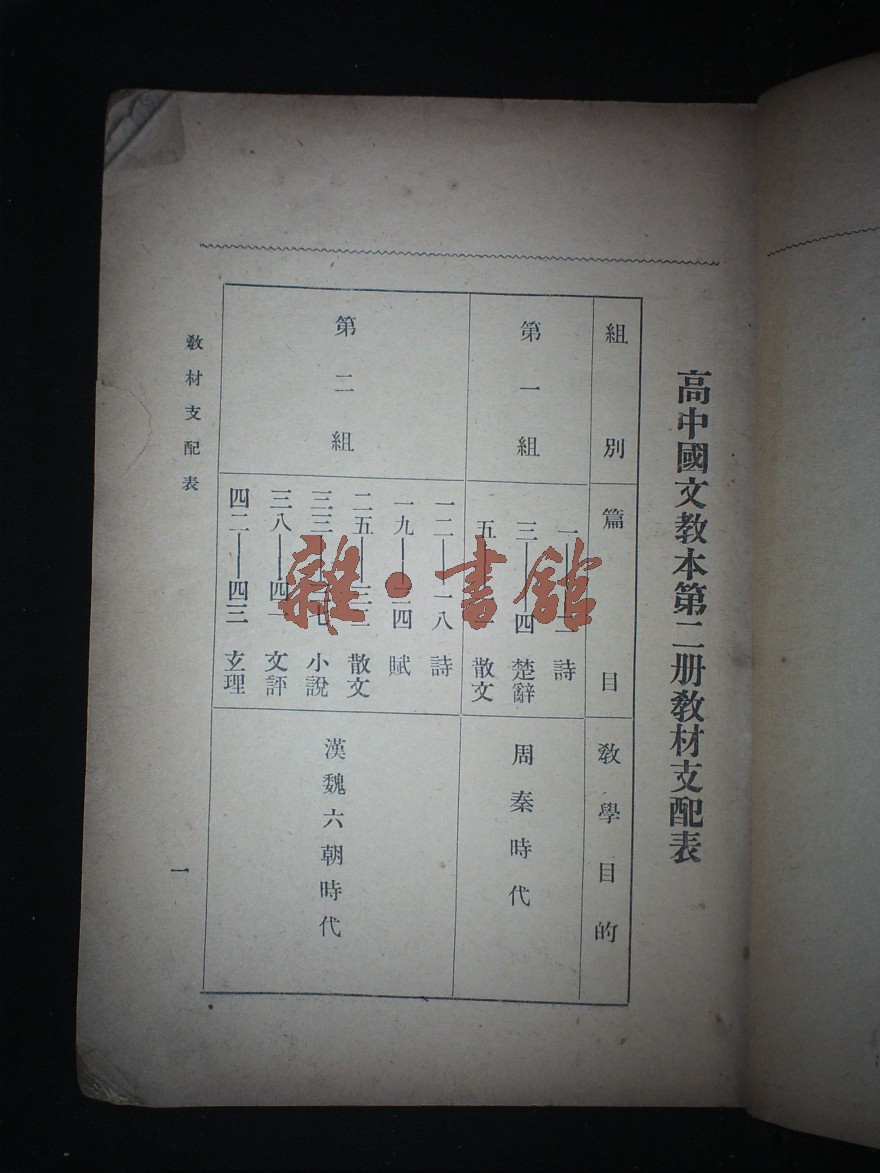 高中國文教本第二册教材支配表
組別 篇目 教學目的
第一組
一——二 詩
三——四 楚辭
五 散文
周秦時代
第二組
一二——一八 詩
一九——二四 賦
二五——三二 散文
三三——三七 小說
三八——四一 文評
四二——四三 玄理
漢魏六朝時代
教材支配表
一
雜·書館